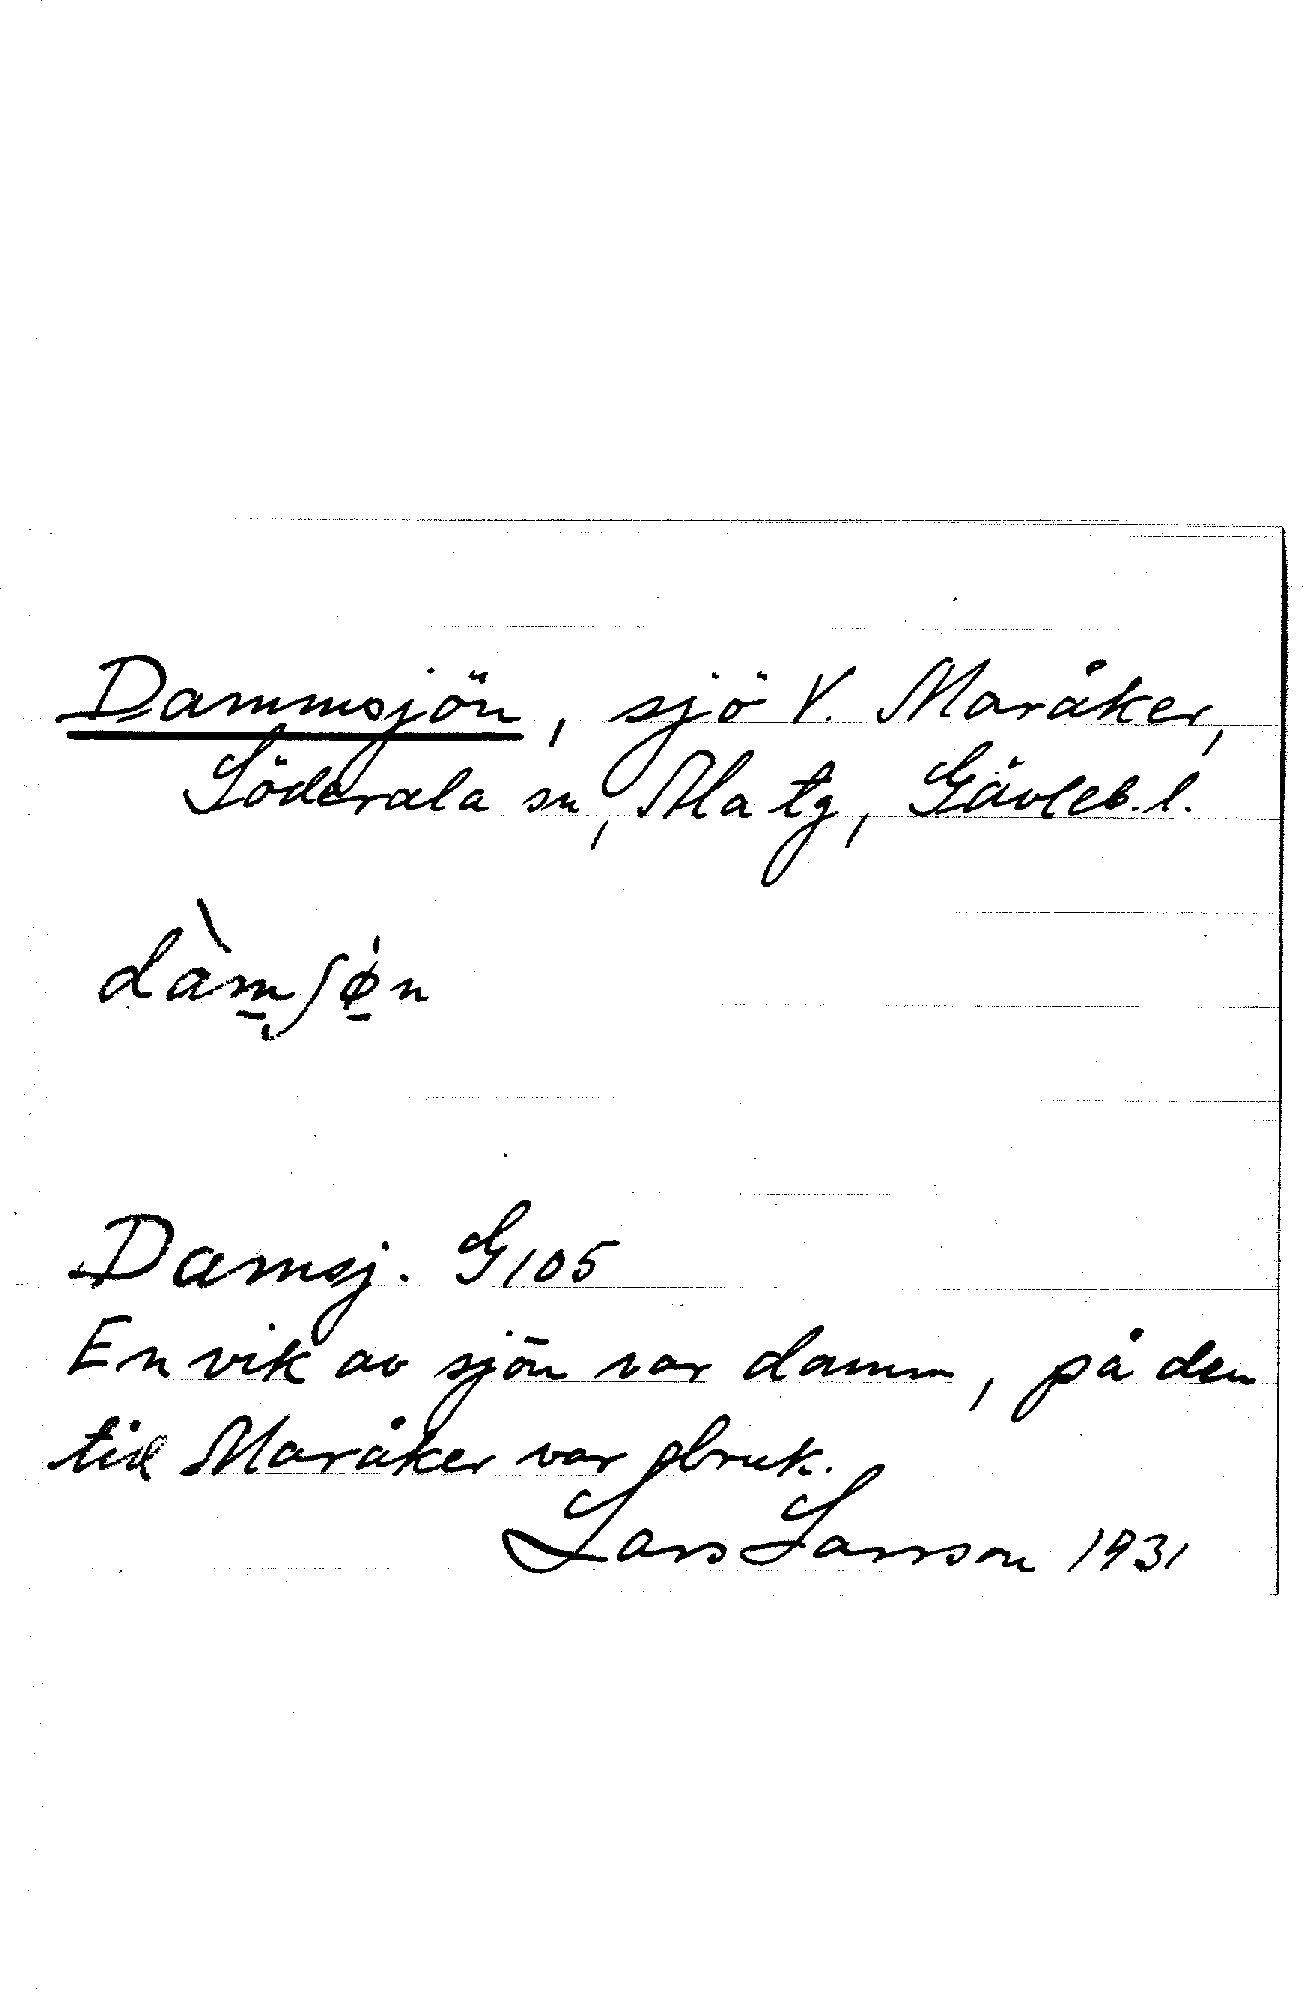 Dammsjön, sjö V. Maråker,
Söderala sn, Ala tg, Gävleb. l.
dàm̱ʃø̱n
Damsj. G105
En vik av sjön var damm, på den
tid Maråker var bruk.
Lars Larsson 1931